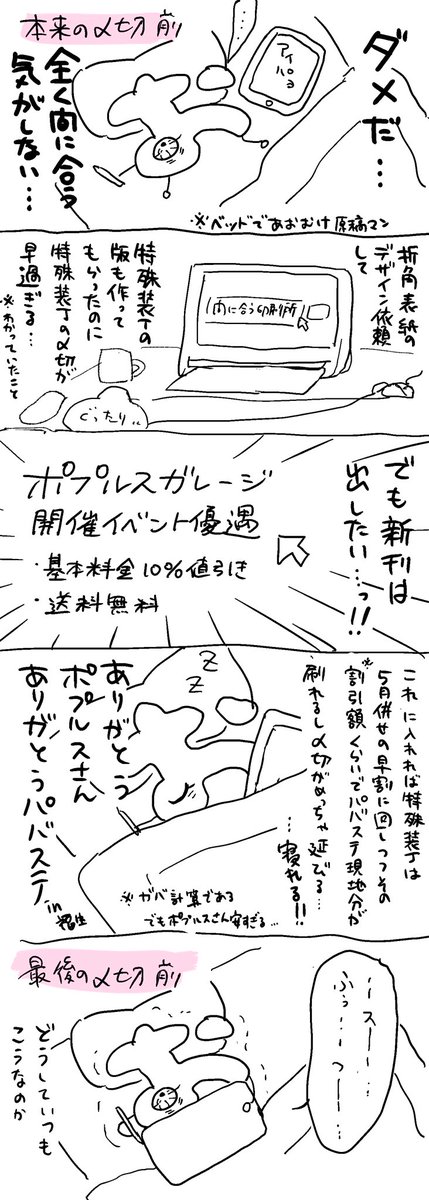 本来の〆切前
ダメだ…
アイパヨ
全く間に合う
気がしない…
※ベッドであおむけ原稿マン
折角表紙の
デザイン依頼
して
間に合う印刷所
特殊装丁の
版も作って
もらったのに
特殊装丁の〆切が
早過ぎる…
※わかっていたこと
ぐったり
でも新刊は
出したい…っ!!
ポプルスガレージ
開催イベント優遇
・基本料金10%値引き
・送料無料
これに入れれば特殊装丁は
5月併せの早割に回しつつその
※割引額くらいでパバステ現地分が
刷れるし〆切がめっちゃ延びる…
…寝れる!!
z
z
ありがとう
ポプルスさん
ありがとうパバステ
in
※ガバ計算である
でもポプルスさん安すぎる…
最後の〆切前
スー…
ふぅ…
つ…
どうしていつも
こうなのか